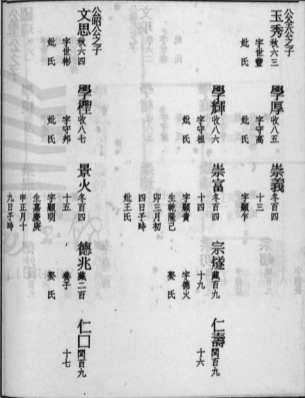 公全公之子
玉秀
秋六三
字世豐
妣 氏
學厚
收八五
字守高
妣 氏
崇義
冬百四
十三
字顯乍
學輝
收八六
字守祖
妣 氏
崇富
冬百四
十四
字顯貴
生乾隆己
卯三月初
四日子時
妣王氏
宗燧
藏百九
十九
字德火
娶 氏
仁壽
閏百九
十六
公昭公之子
文思
秋六四
字世彬
妣 氏
學樫
收八七
字守邦
妣 氏
景火
冬百四
十五
字顯明
生嘉慶庚
申正月十
九日子時
德兆
藏二百
養子
娶 氏
仁口
閏百九
十七